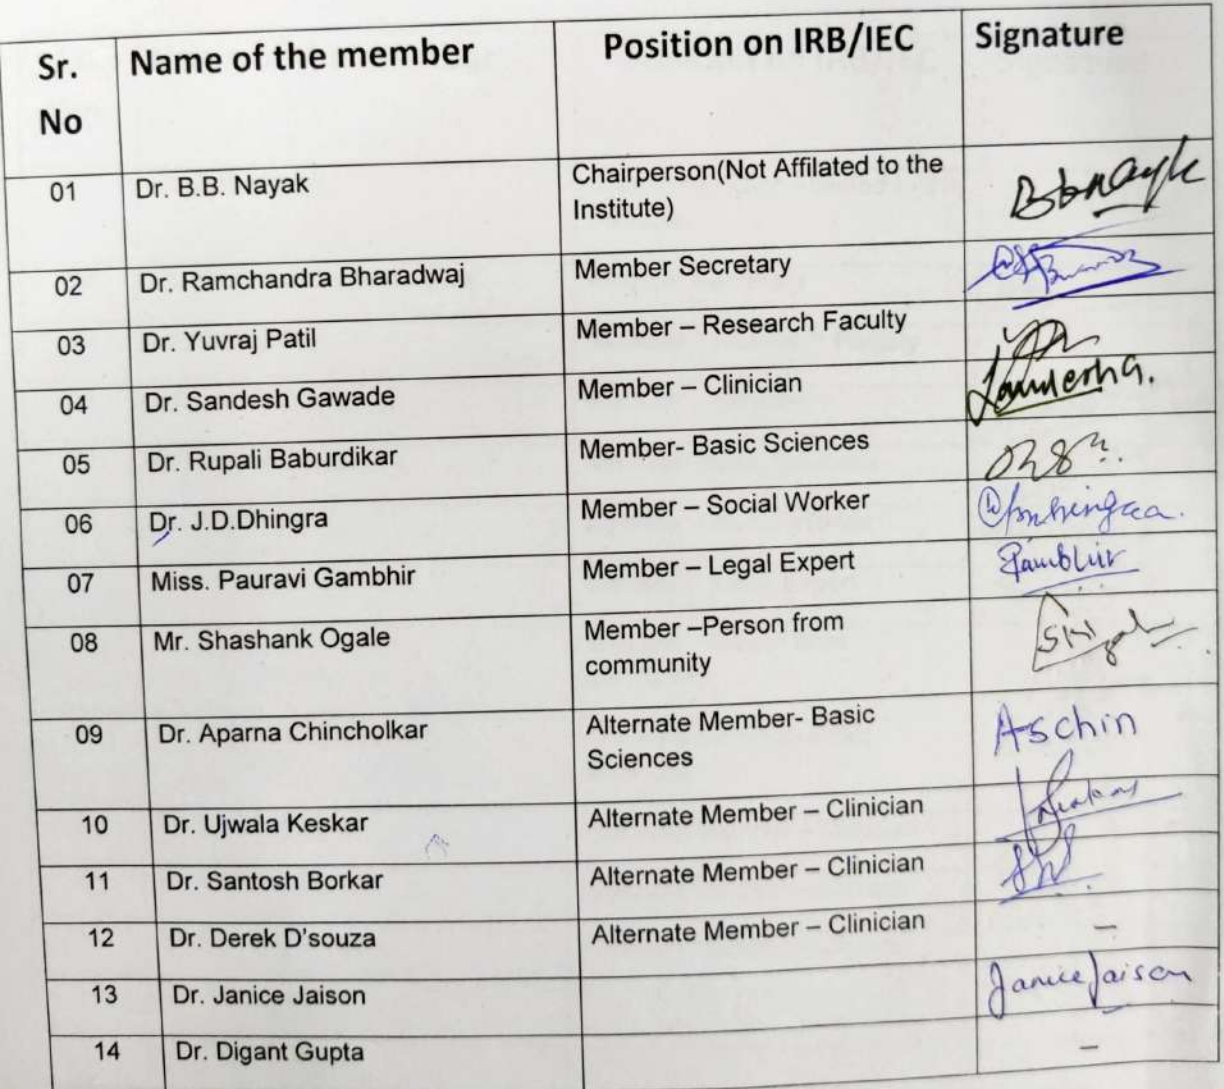 Sr. No
Name of the member
Position on IRB/IEC
Signature
01
Dr. B.B. Nayak
Chairperson(Not Affilated to the
Institute)
Bbnayk
02
Dr. Ramchandra Bharadwaj
Member Secretary
03
Dr. Yuvraj Patil
Member – Research Faculty
04
Dr. Sandesh Gawade
Member – Clinician
05
Dr. Rupali Baburdikar
Member- Basic Sciences
06
Dr. J.D.Dhingra
Member – Social Worker
07
Miss. Pauravi Gambhir
Member – Legal Expert
08
Mr. Shashank Ogale
Member –Person from
community
09
Dr. Aparna Chincholkar
Alternate Member- Basic
Sciences
Aschin
10
Dr. Ujwala Keskar
Alternate Member – Clinician
11
Dr. Santosh Borkar
Alternate Member – Clinician
12
Dr. Derek D'souza
Alternate Member – Clinician
–
13
Dr. Janice Jaison
Janice Jaison
14
Dr. Digant Gupta
–